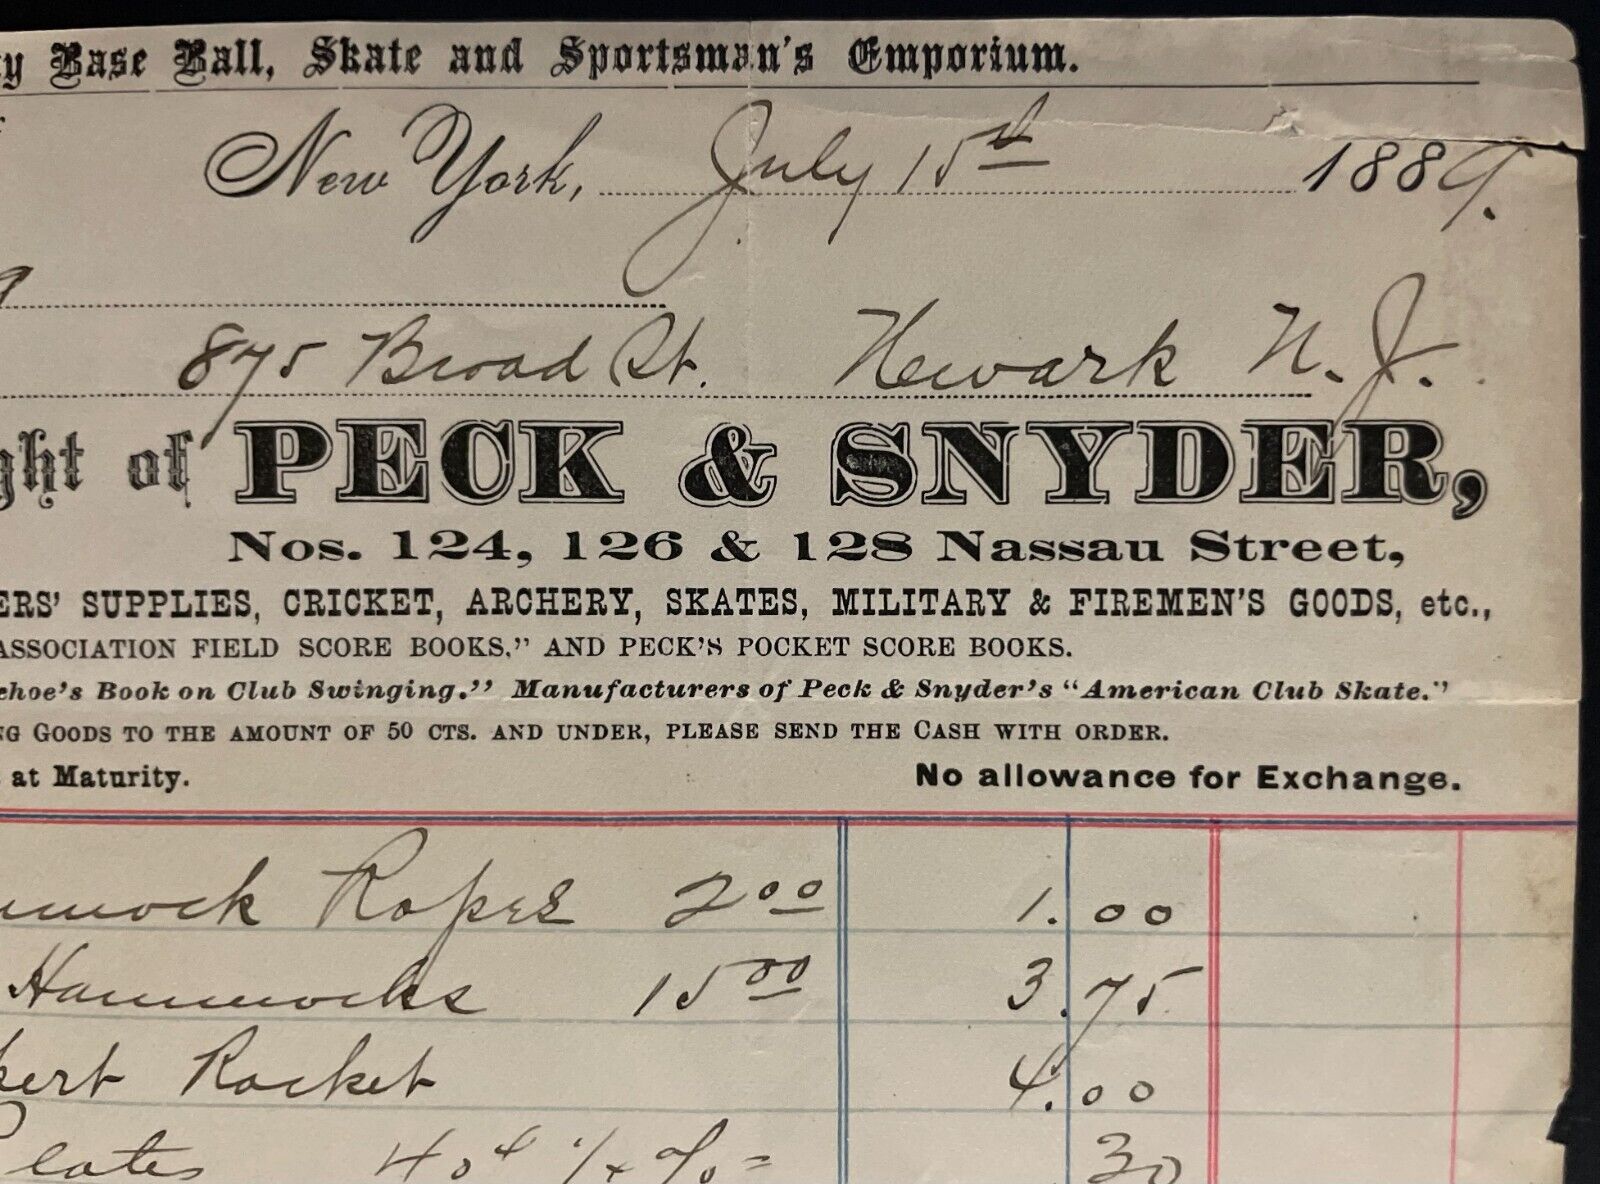 Base Ball, Skate and Sportsman's Emporium.
New York, July 15th 1889.
875 Broad St. Newark N.J.
of PECK & SNYDER,
Nos. 124, 126 & 128 Nassau Street,
ERS' SUPPLIES, CRICKET, ARCHERY, SKATES, MILITARY & FIREMEN'S GOODS, etc.,
ASSOCIATION FIELD SCORE BOOKS," AND PECK'S POCKET SCORE BOOKS.
ehoe's Book on Club Swinging." Manufacturers of Peck & Snyder's "American Club Skate."
NG GOODS TO THE AMOUNT OF 50 CTS. AND UNDER, PLEASE SEND THE CASH WITH ORDER.
at Maturity. No allowance for Exchange.
Ropes 2 00 1.00
Hammocks 15 00 3.75
pert Racket 4.00
Plates 30